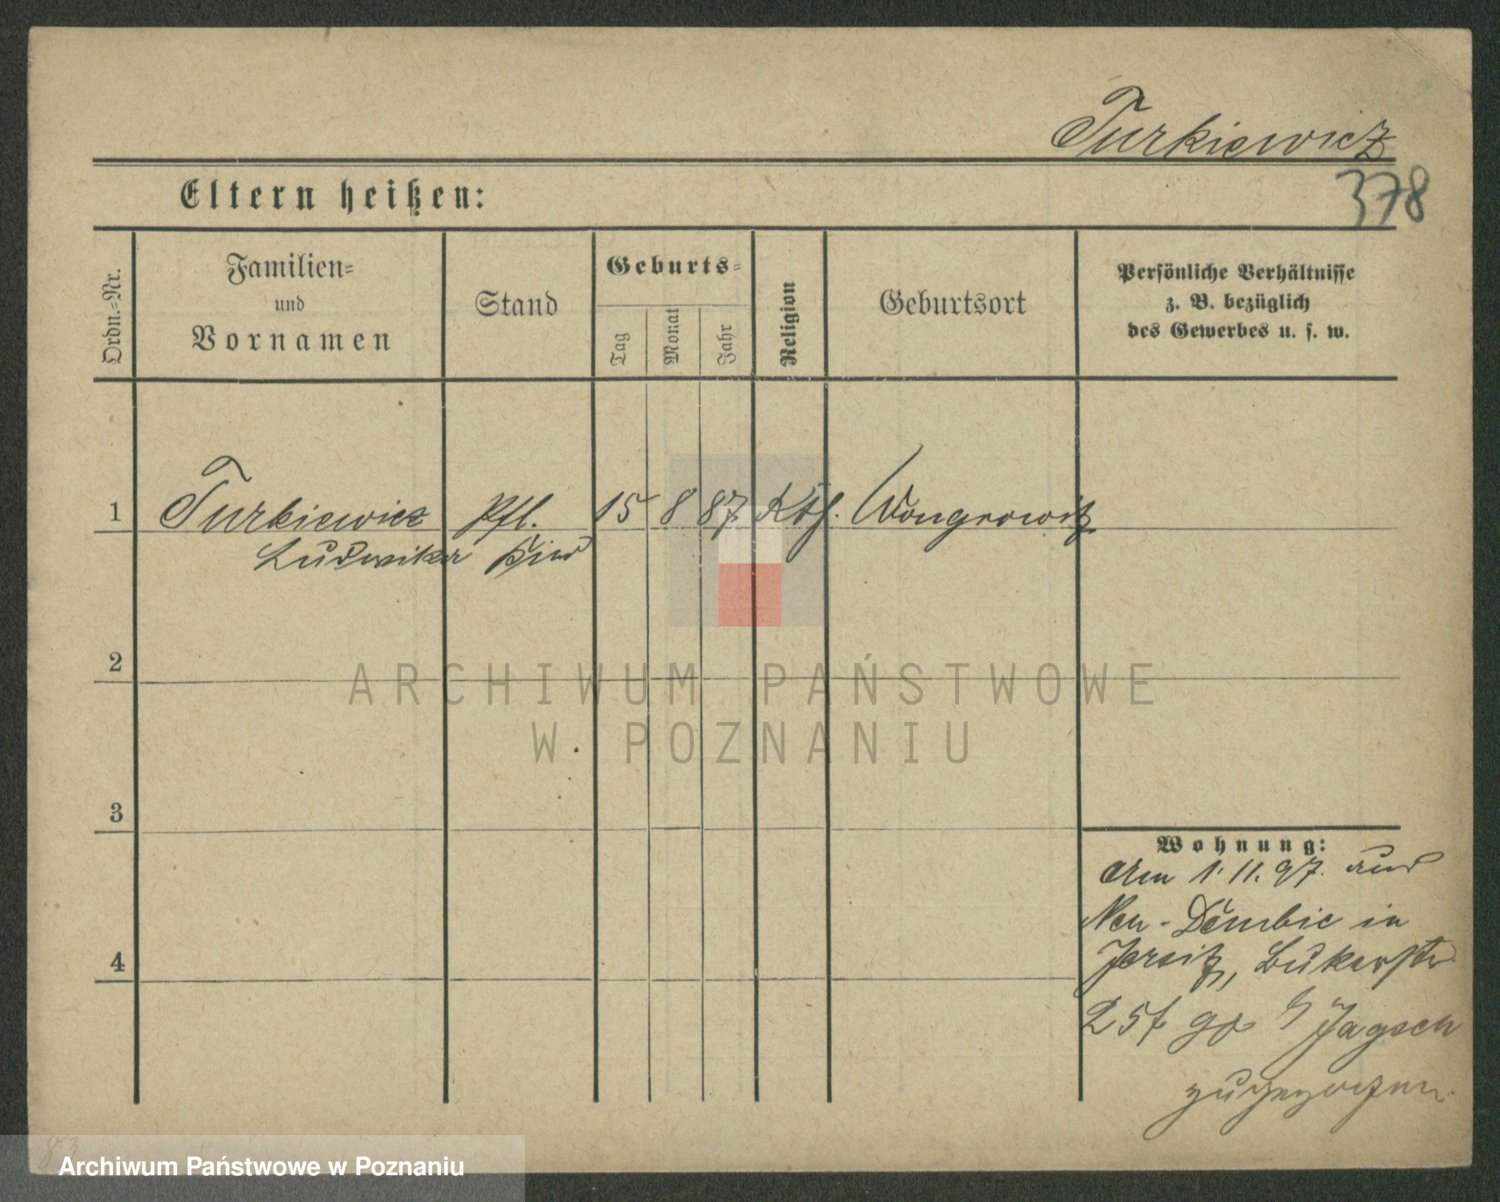 Turkiewicz
378
Eltern heißen:
Ordn.-Nr.
Familien-
und
Vornamen
Stand
Geburts-
Tag
Monat
Jahr
Religion
Geburtsort
Persönliche Verhältnisse
z. B. bezüglich
des Gewerbes u. s. w.
1
Turkiewicz Pfl. 15 8 87 Kth. Wongrowitz
Ludwika Kind
2
ARCHIWUM PAŃSTWOWE
W POZNANIU
3
Wohnung:
Am 1.11.97. aus
Neu-Dembic in
Jersitz, Bukerstr
25 Jagsch
zugezogen.
4
Archiwum Państwowe w Poznaniu